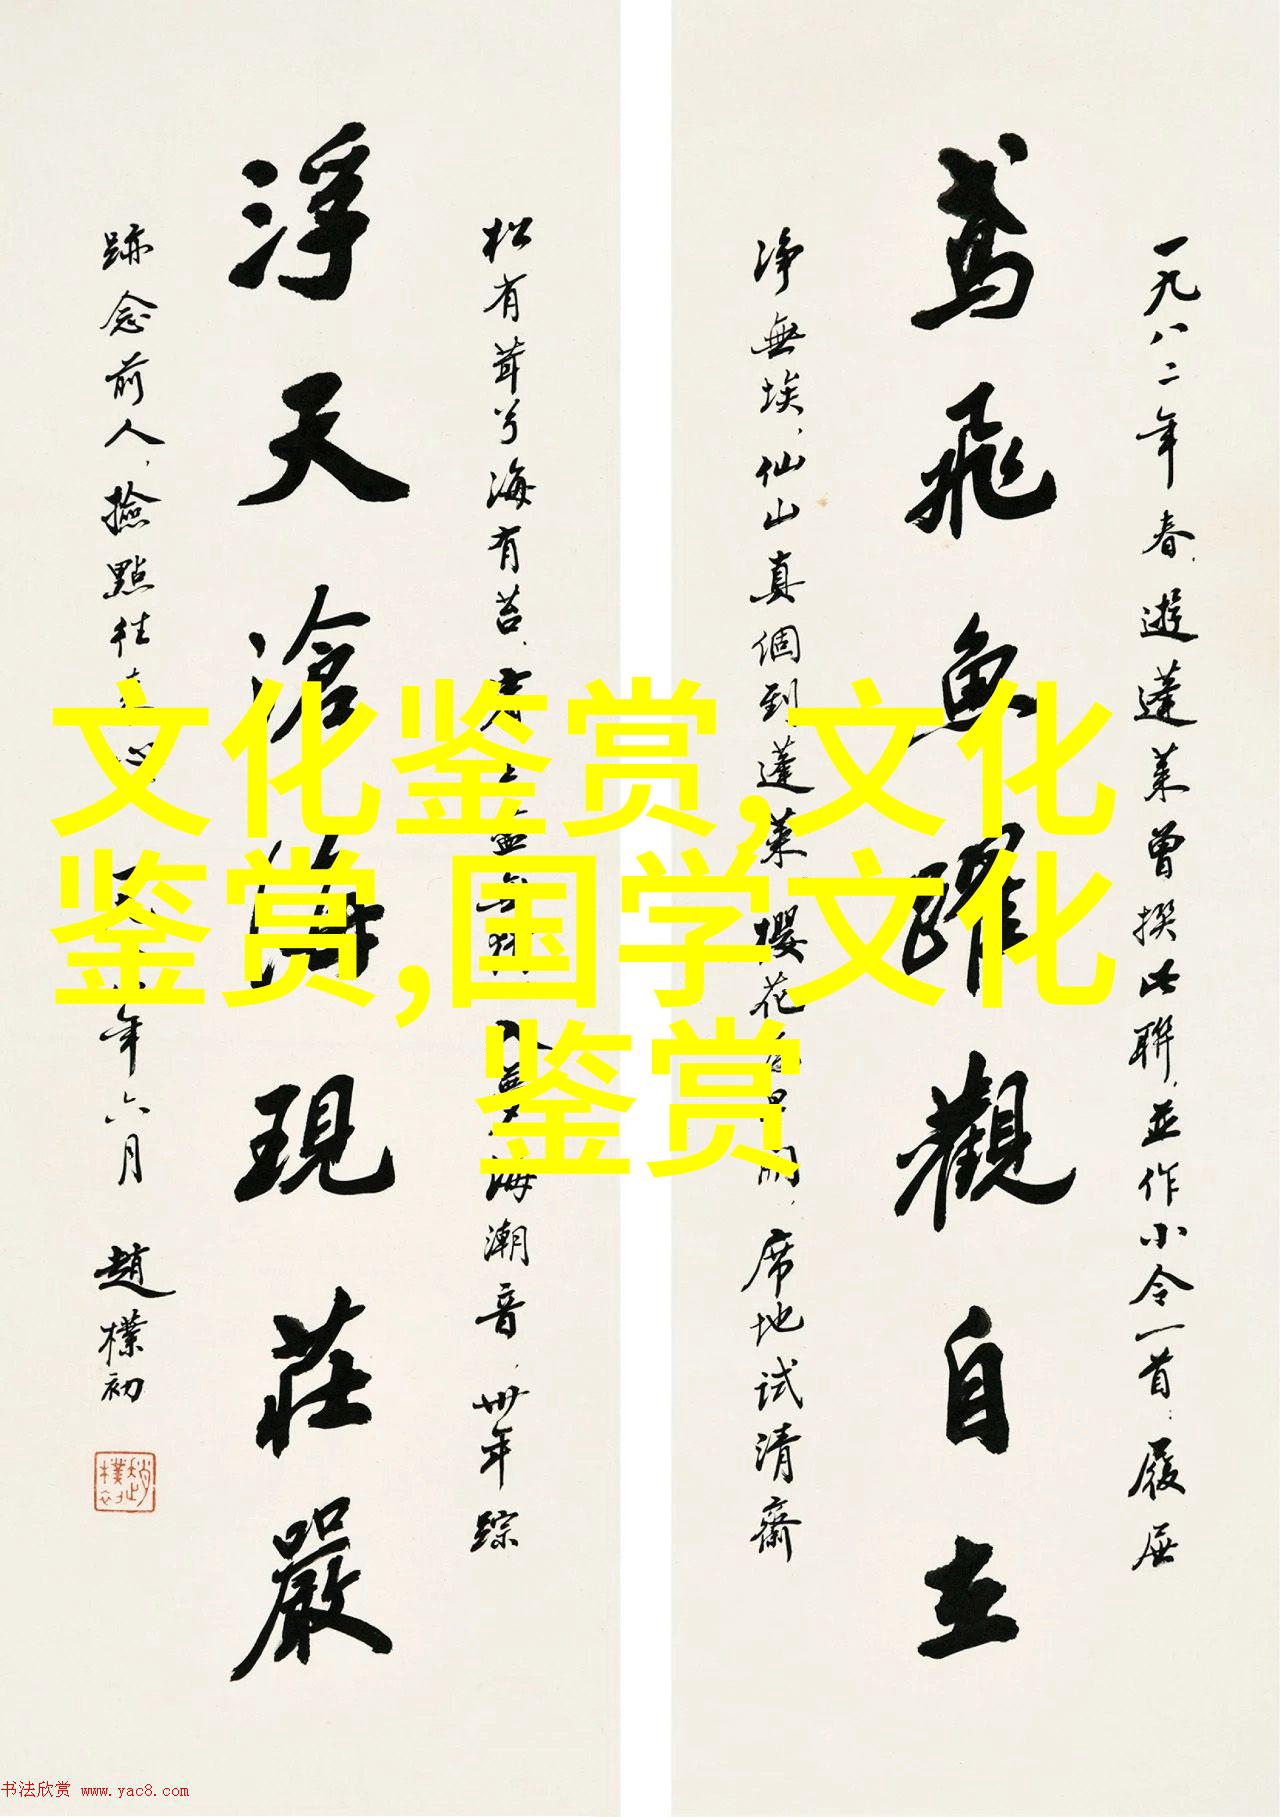 一九八二年春，遊蓬莱曾撰此聯，並作小令一首：履屐
鳶飛魚躍觀自在
净無埃，仙山真個到蓬莱。櫻花開，席地試清齋
松有茸兮海有苔，海潮音，卅年踪
浮天滄海現莊嚴
跡念前人，撿點往心年六月 趙樸初
趙樸初
文化鉴赏,文化
鉴赏,国学文化
鉴赏
书法欣赏 www.yac8.com